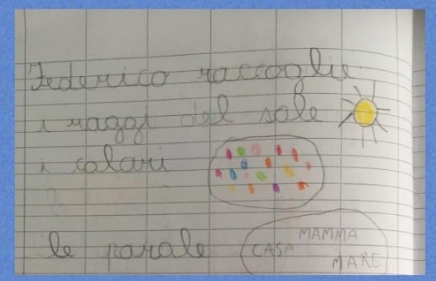 Federico raccoglie
i raggi del sole
i colori
le parole
MAMMA
CASA
MARE